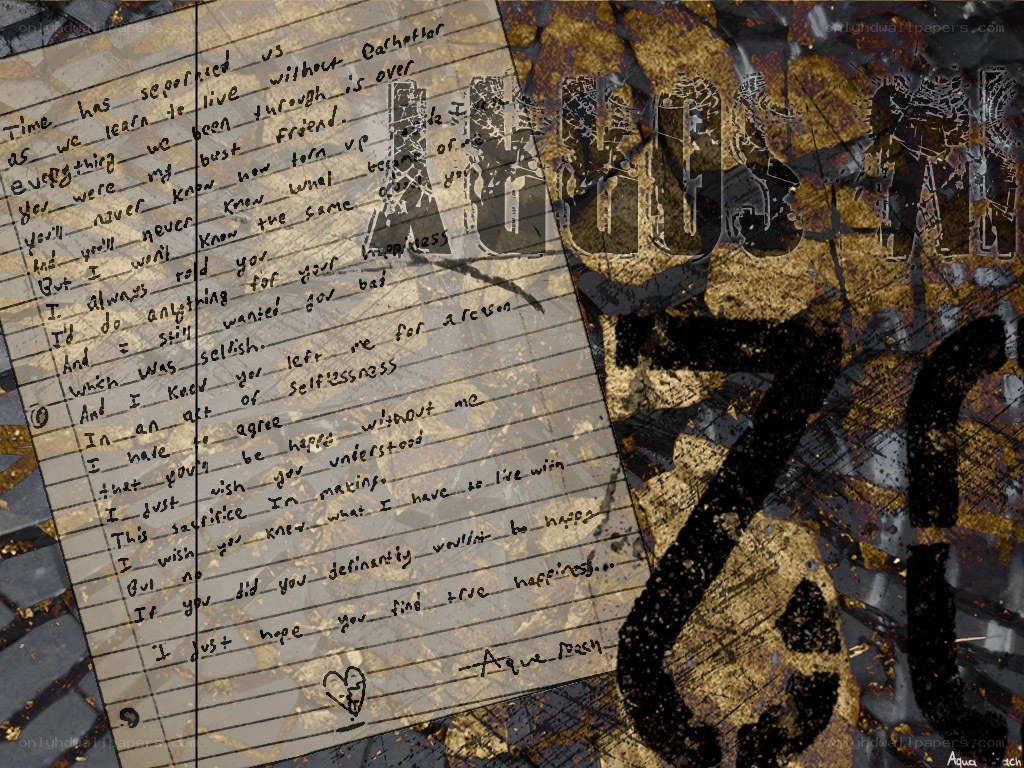 onlyhdwallpapers.com
onlyhdwallpapers.com
Time has seperated us
as we learn to live without Eachother
everything we been through is over
You were my bust friend.
You'll never know how torn up inside I
And you'll never know what become of me
But I won't know the same
I always told you
I'd do anything for your happiness
And I still wanted you bad
which was selfish.
And I know you left me for a reason
In an act of selflessness
I have to agree
that you'll be happy without me
I Just wish you understood
This sacrifice Im making.
I wish you knew what I have to live with
But no
If you did you definantly wouldnt be happy
I Just hope you find true happiness...
—Aqua
onlyhdwallpapers.com
onlyhdwallpapers.com
Aqua